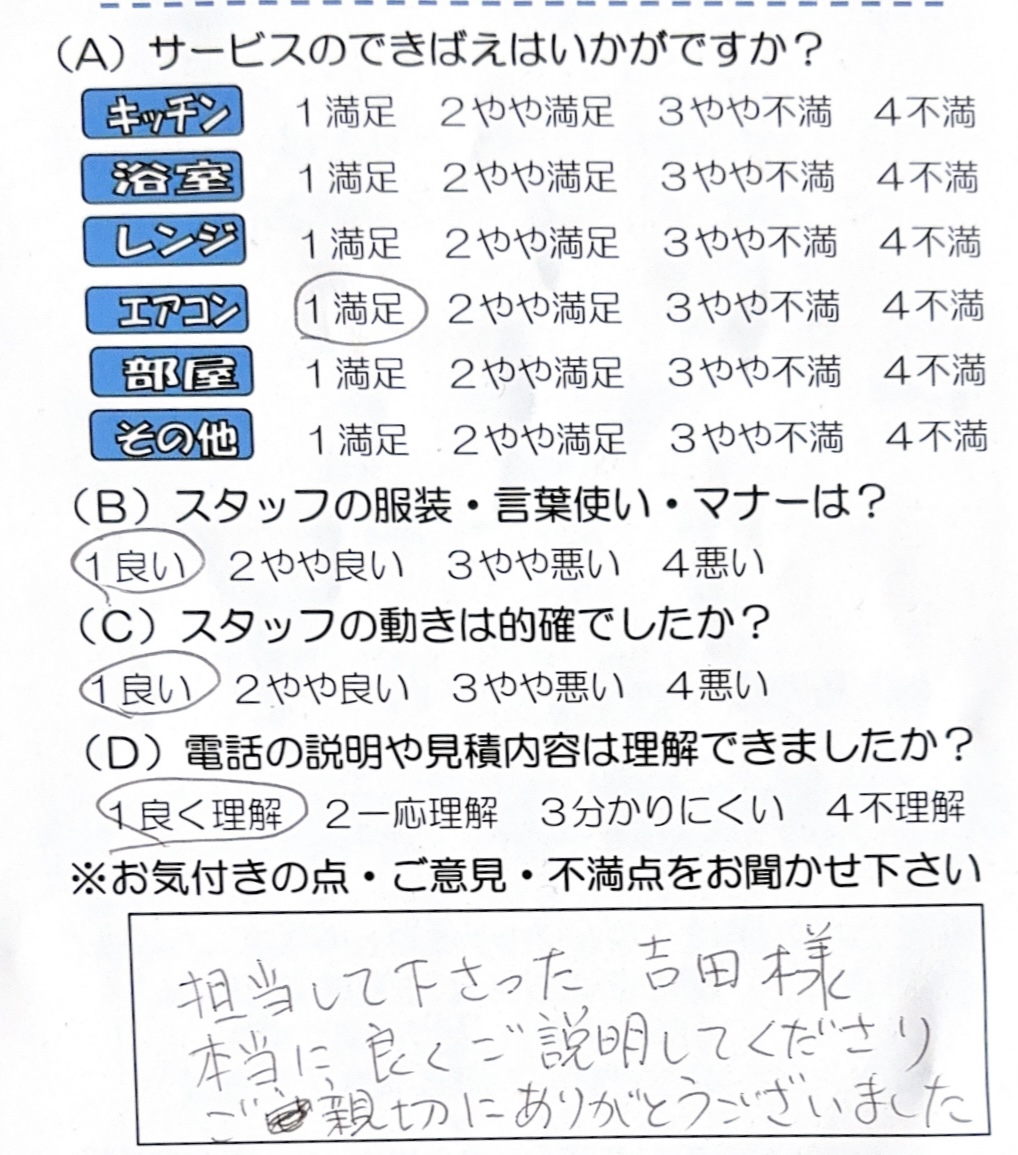 （A）サービスのできばえはいかがですか？
キッチン 1満足 2やや満足 3やや不満 4不満
浴室 1満足 2やや満足 3やや不満 4不満
レンジ 1満足 2やや満足 3やや不満 4不満
エアコン 1満足 2やや満足 3やや不満 4不満
部屋 1満足 2やや満足 3やや不満 4不満
その他 1満足 2やや満足 3やや不満 4不満
（B）スタッフの服装・言葉使い・マナーは？
1良い 2やや良い 3やや悪い 4悪い
（C）スタッフの動きは的確でしたか？
1良い 2やや良い 3やや悪い 4悪い
（D）電話の説明や見積内容は理解できましたか？
1良く理解 2一応理解 3分かりにくい 4不理解
※お気付きの点・ご意見・不満点をお聞かせ下さい
担当して下さった 吉田様
本当に良くご説明してくださり
ご親切にありがとうございました